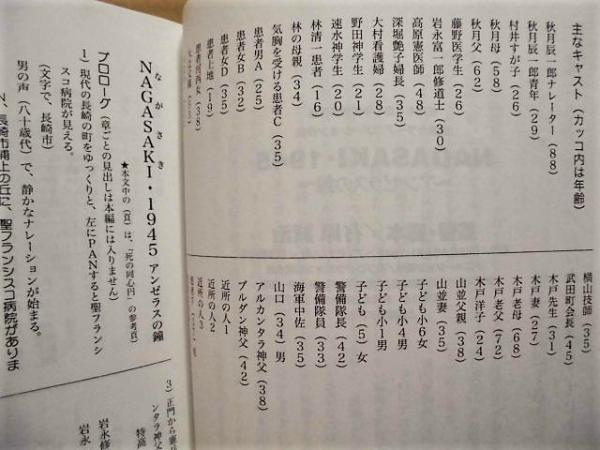 主なキャスト（カッコ内は年齢）
秋月辰一郎ナレーター（88）
秋月辰一郎青年（29）
村井すが子（26）
秋月母（58）
秋月父（62）
藤野医学生（26）
岩永富一郎修道士（30）
高原憲医師（48）
深堀艶子婦長（35）
大村看護婦（28）
野田神学生（21）
速水神学生（20）
林清一患者（16）
林の母親（34）
気胸を受ける患者C（35）
患者男A（25）
患者女B（32）
患者女D（35）
患者上地（19）
横山技師（35）
武田町会長（45）
木戸先生（31）
木戸妻（27）
木戸老母（68）
木戸老父（72）
木戸洋子（24）
山並父親（38）
山並妻（35）
子ども小6女
子ども小4男
子ども小1男
子ども（5）女
警備隊長（42）
警備隊員（33）
海軍中佐（35）
山口（34）男
アルカンタラ神父（38）
ブルダン神父（42）
近所の人1
近所の人2
近所の人3
ながさき
NAGASAKI・1945 アンゼラスの鐘
★本文中の（頁）は、『死の同心円』の参考頁）
プロローグ（章ごとの見出しは本編には入りません）
1）現代の長崎の町をゆっくりと、左にPANすると聖フランシ
スコ病院が見える。
（文字で、長崎市）
男の声（八十歳代）で、静かなナレーションが始まる。
N、長崎市浦上の丘に、聖フランシスコ病院がありま
3）正門から憲
ンタラ神父
特高
岩永修
岩永